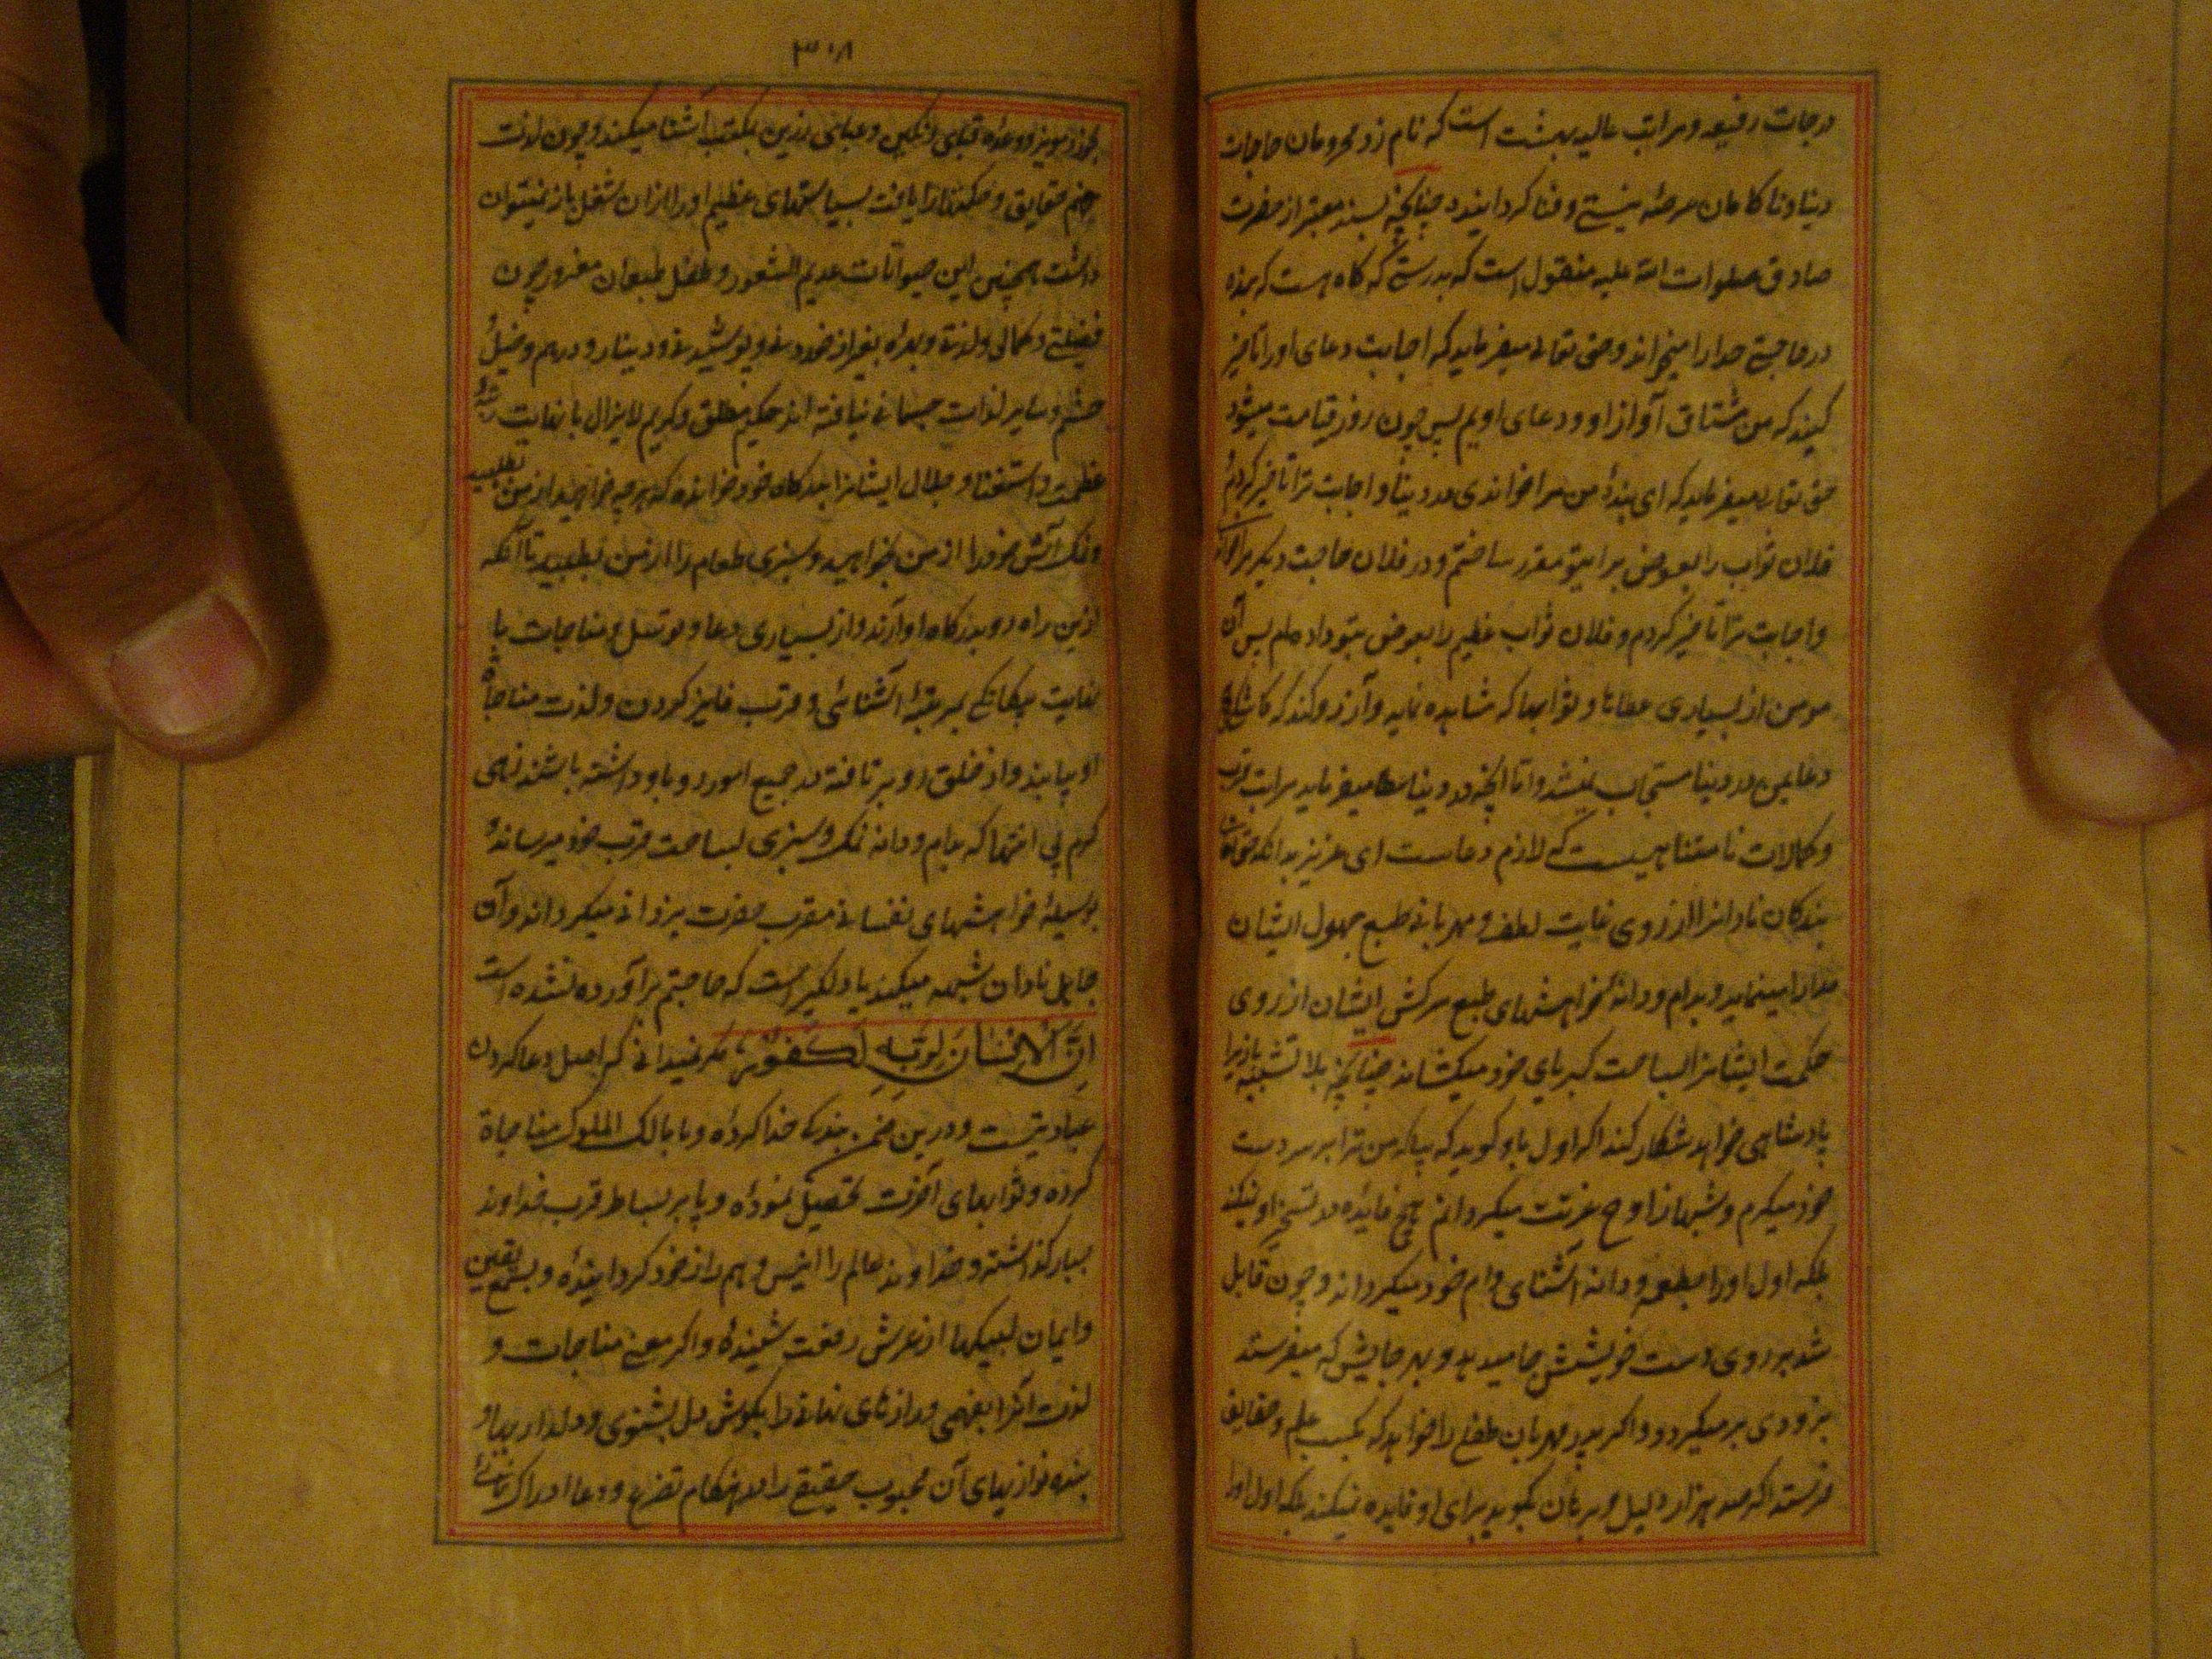 درجات رفیعه و مراتب عالیه بهشت است که نام زد محرومان حاجات
دنیا و ناکامان عرصه نیستی و فنا کردانیدد چنانچه بسند معتبر از حضرت
صادق صلوات الله علیه منقول است که بدرستی که کاه هست که بنده
در حاجتی خدا را میخواند و حق تعالی میفرماید که اجابت دعای او را تاخیر
کنید که من مشتاق آواز او و دعای اویم پس چون روز قیامت میشود
حق تعالی میفرماید که ای بندهٔ من مرا خواندی در دنیا و اجابت ترا تاخیر کردم
فلان ثواب را بعوض برایتو مقرر ساختم و در فلان حاجت دیکر مرا
و اجابت ترا تاخیر کردم و فلان ثواب عظیم را بعوض بتو داده‌ام پس آن
مومن از بسیاری عطاها و ثوابها که مشاهده نماید آرزو کند که کاش
دعایمن در دنیا مستجاب نمیشد و اما آنچه در دنیا میفرماید مراتب قرب
و کمالات نامتناهیست که لازم دعاست ای عزیز بدانکه
بندکان نادانرا از روی غایت لطف و مهربانی طبع جهول ایشان
مدارا مینماید و بدام و دانه خواهشهای طبع سرکش ایشان از روی
حکمت ایشانرا بساحت کبریای خود میکشاند چنانچه بلا تشبیه بازیرا
پادشاهی خواهد شکار کند اکر اول باو کوید که بیا که من ترا بر سر دست
خود میکیرم و شهباز اوج عزتت میکردانم هیچ فایده در تسخیر او نیکند
بلکه اول او را بطعمه و دانه آشنای دام خود میکرداند و چون قابل
شد بر روی دست خویشش جا میدهد و بهر جایش که میفرستد
بزودی بر میکردد و اکر پدر مهربان طفلی را خواهد که بکسب علم و حقایق
فرستد اکر صد هزار دلیل و برهان بکوید برای او فایده نمیکند بلکه اول او را
٣٠٨
بجوز و مویز و وعده قبای رنکین و عبای زرین بمکتب آشنا میکند و چون لذت
فهم حقایق و حکمتها را یافت بسیاستهای عظیم او را از آن شغل باز نمیتوان
داشت همچنین این حیوانات عدیم الشعور و طفل طبعان مغرور چون
فضیلتی و کمالی و لذتی و بهره بغیر از خوردنی و پوشیدنی و دینار و درهم و خیل و
حشم و سایر لذات جسمانی نیافته‌اند حکیم مطلق و کریم لایزال با نهایت
عظمت و استغنا و جلال ایشانرا بدرکاه خود خوانده که هر چه خواهید از من بطلبید
و نمک آش خود را از من بخواهید و سبزی طعام را از من بطلبید تا آنکه
ازین راه رو بدرکاه او آرند و از بسیاری دعا و توسل و مناجات با
نهایت بیکانکی بمرتبهٔ آشنائی و قرب فایز کردند و لذت مناجات
او بیابند و از خلق رو بر تافته در جمیع امور رو باو داشته باشند زهی
کرم بی انتها که بدام و دانه نمک و سبزی بساحت قرب خود میرساند و
بوسیلهٔ خواهشهای نفسانی مقرب حضرت یزدانی میکرداند و آن
جاهل نادان شبهه میکند یا دلکیر است که حاجتم برآورده نشده است
اِنَّ الْاِنْسَانَ لِرَبِّهِ لَكَفُورٌ مکر نمیدانی که اصل دعا کردن
عبادتیست و درین ضمن بندکی خدا کرده و با مالک الملوک مناجاة
کرده و ثوابهای آخرت تحصیل نموده و پا بر بساط قرب خداوند
جبار کذاشته و خداوند عالم را انیس و هم راز خود کردانیدهٔ و بسمع یقین
و ایمان لبیکها از عرش رفعت شنیدهٔ و اکر معنی مناجات و
لذت آنرا بفهمی و رازهای نهانی را بکوش دل بشنوی و
بنده نوازیهای آن محبوب حقیقی را در هنکام تضرع و دعا ادراک